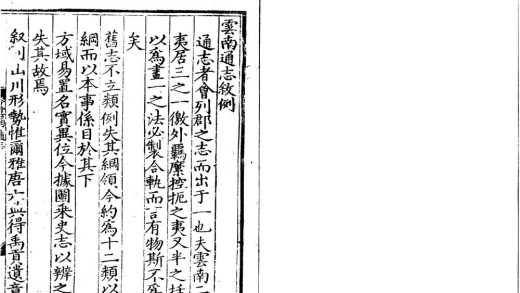 雲南通志敘例
通志者會列郡之志而出于一也夫雲南
夷居三之一徼外羈縻控扼之夷又半之
以爲畫一之法必製合軌而言有物斯不
矣
舊志不立類例失其綱領今約爲十二類以
綱而以本事係目於其下
方域易置名實異位今據圖乘史志以辨之
失其故焉
叙山川形勢惟爾雅唐六典得禹貢遺意